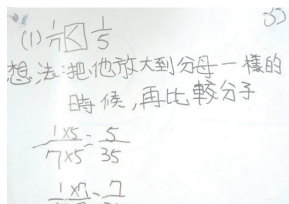 35
(1) 1/7 < 1/5
想法:把他放大到分母一樣的
時候,再比較分子
1×5/7×5=5/35
1×7 = 7